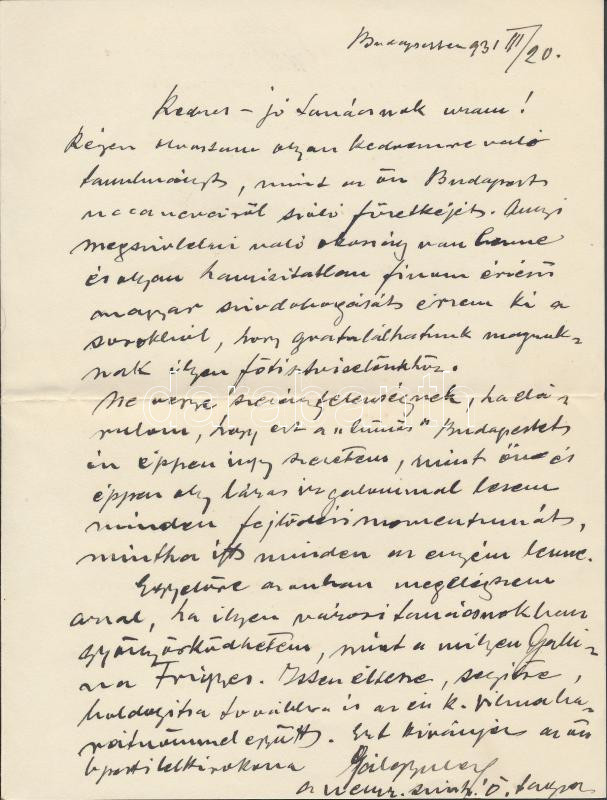 Budapesten 931 III/20.
Kedves – jó tanácsnok uram!
Régen olvastam olyan kedvemre való
tanulmányt, mint az ön Budapest
szóló füzetkéjét. Annyi
megszívlelni való okosság van benne
és olyan hamisítatlan finom érzésű
magyar szívdobogását érzem ki a
sorokból, hogy gratulálhatunk magunk-
nak ilyen főtisztviselőnkhöz.
Ne vegye szerénytelenségnek, ha elá-
rulom, hogy ezt a „bűnös” Budapestet
én éppen úgy szeretem, mint Ön és
éppen oly lázas izgalommal lesem
minden fejlődési momentumát,
mintha itt minden az enyém lenne.
Egyelőre azonban megelégszem
azzal, ha ilyen városi tanácsnokban
gyönyörködhetem, mint a milyen Galli-
na Frigyes. Isten éltesse, segítse,
boldogítsa továbbra is az én k. Vilma ba-
rátnőmmel együtt. Ezt kívánja az ön
bpesti lelki rokona
a nemz. szinh. ö. tagja
darabanth